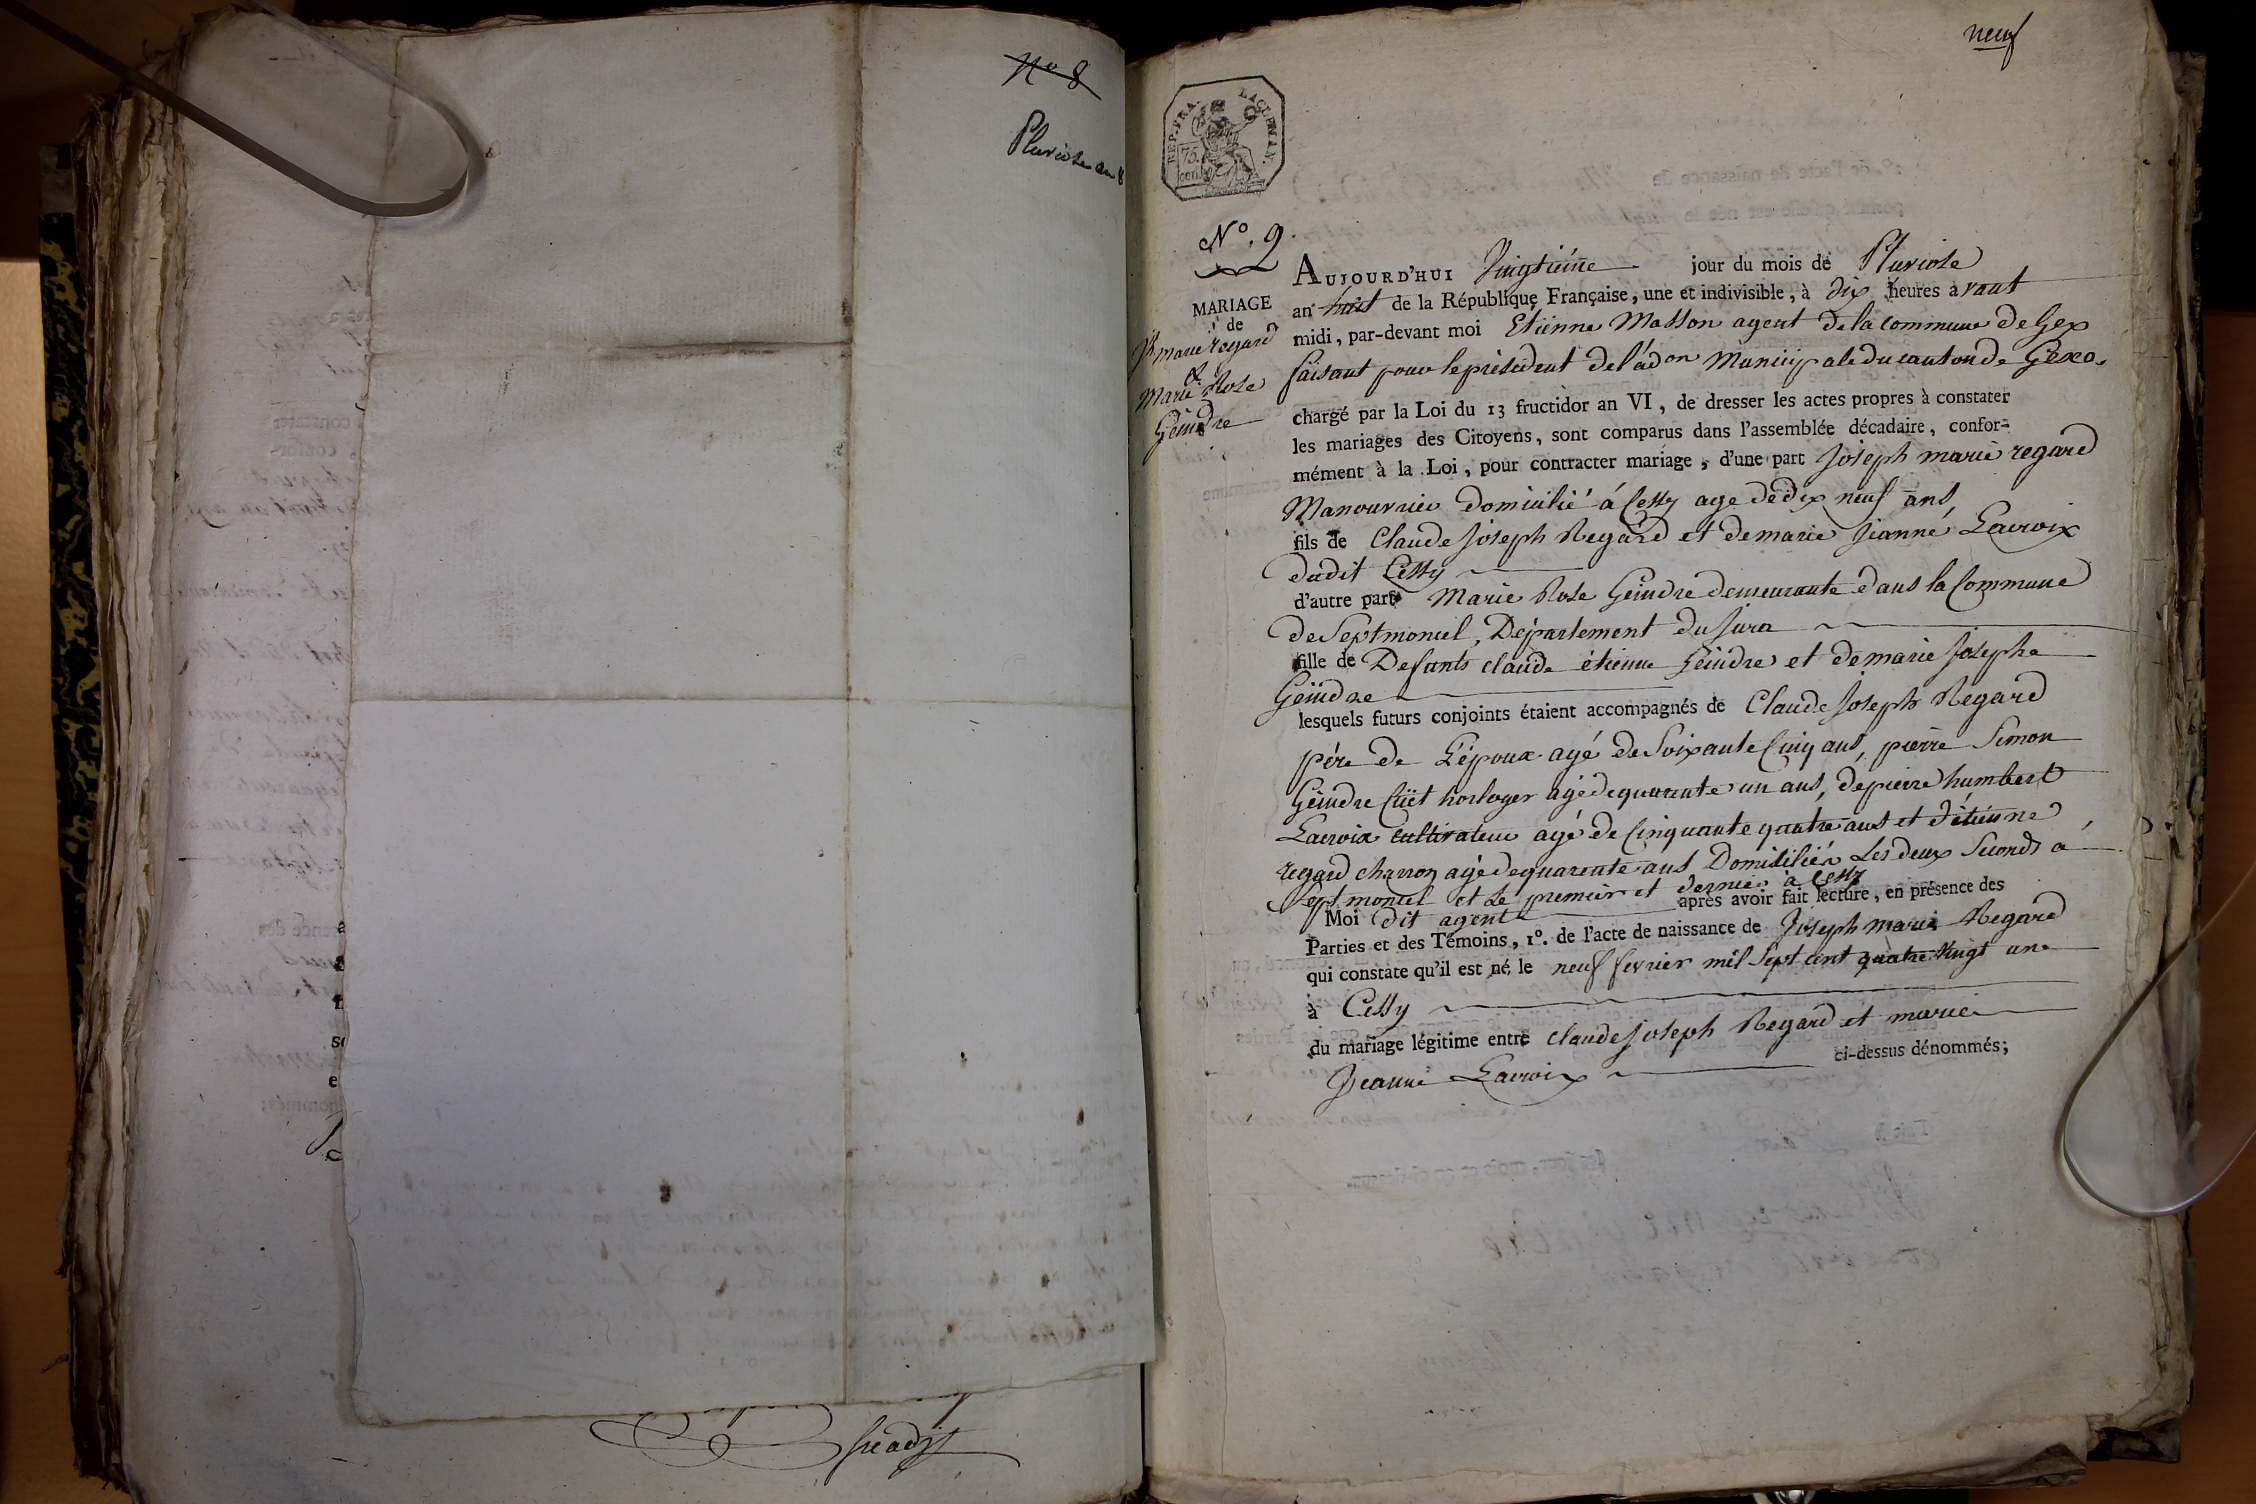 N° 8
Pluviose an 8
neuf
REP. FRA.
75.
cent.
N°. 9.
MARIAGE
de
Jh marie regard
&
Marie Rose
Geindre
AUJOURD'HUI Vingtième jour du mois de Pluviose
an huit de la République Française, une et indivisible, à dix heures avant
midi, par-devant moi Etienne Masson agent de la commune de Gex
faisant pour le président de l'adon Municipale du canton de Gex
chargé par la Loi du 13 fructidor an VI, de dresser les actes propres à constater
les mariages des Citoyens, sont comparus dans l'assemblée décadaire, confor-
mément à la Loi, pour contracter mariage, d'une part Joseph marie regard
Manouvrier domicilié à Cessy age de dix neuf ans
fils de Claude Joseph Regard et de marie Jeanne Lacroix
dudit Cessy
d'autre part Marie Rose Geindre demeurante dans la Commune
de Septmoncel, Département du Jura
fille de Defunts claude étienne Geindre et de marie Josephe
Geindre
lesquels futurs conjoints étaient accompagnés de Claude Joseph Regard
père de L'époux agé de Soixante Cinq ans, pierre Simon
Geindre horloger agé de quarante un ans, de pierre humbert
Lacroix cultivateur agé de Cinquante quatre ans et d'étienne
regard charron agé de quarente ans Domiciliés Les deux Seconds à
Septmoncel et Le premier et dernier à Cessy
Moi dit agent après avoir fait lecture, en présence des
Parties et des Témoins, 1°. de l'acte de naissance de Joseph marie Regard
qui constate qu'il est né le neuf fevrier mil Sept cent quatre Vingt un
à Cessy
du mariage légitime entre claude Joseph Regard et marie
Jeanne Lacroix ci-dessus dénommés;